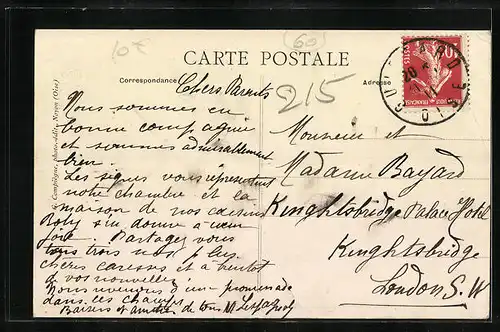 10x
60
CARTE POSTALE
Correspondance
Adresse
215
Chers Parents
Nous sommes en
bonne compagnie
et sommes admirablement
bien.
Les signes vous représentent
notre chambre et la
maison de nos cousins
Roby s'en donne à cœur
joie. Partagez vous
tous trois nos plus
chères caresses et à bientôt
de vos nouvelles.
Nous venons d'une promenade
dans les champs
Baisers et amitiés de tous
Monsieur et
Madame Bayard
Kinghtsbridge Palace Hotel
Kinghtsbridge
London S.W
Compiègne, photo-édit., Noyon (Oise)